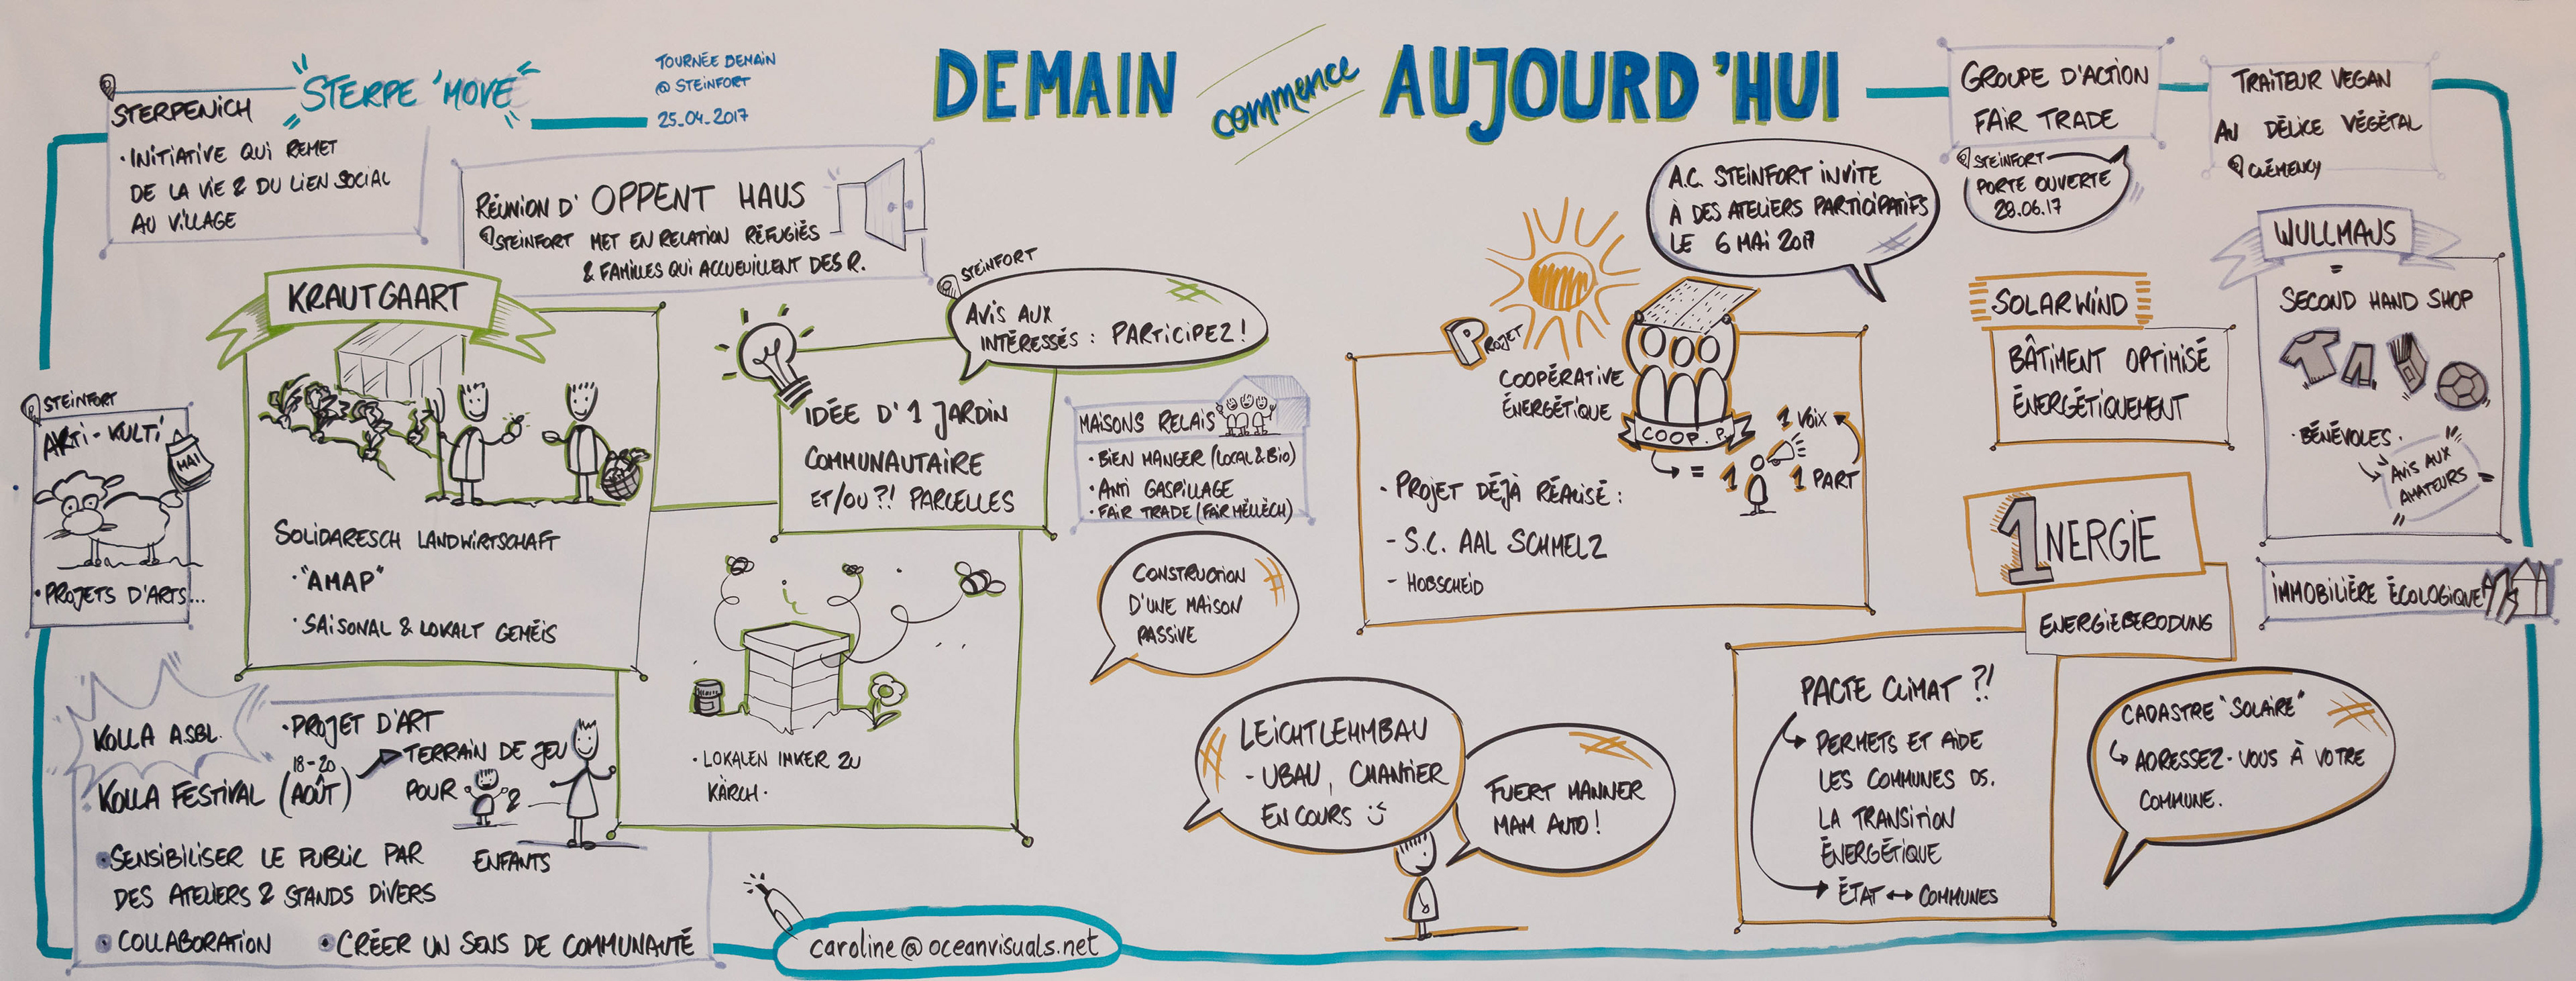 DEMAIN commence AUJOURD'HUI
TOURNÉE DEMAIN
@ STEINFORT
25_04_2017
STERPENICH
STERPE 'MOVE
• INITIATIVE QUI REMET
DE LA VIE & DU LIEN SOCIAL
AU VILLAGE
RÉUNION D' OPPENT HAUS
STEINFORT MET EN RELATION RÉFUGIÉS
& FAMILLES QUI ACCUEUILLENT DES R.
KRAUTGAART
SOLIDARESCH LANDWIRTSCHAFT
• "AMAP"
• SAISONAL & LOKALT GEMÉIS
STEINFORT
ARTI-KULTI
MAI
• PROJETS D'ARTS...
STEINFORT
AVIS AUX
INTÉRESSÉS : PARTICIPEZ !
IDÉE D'1 JARDIN
COMMUNAUTAIRE
ET/OU ?! PARCELLES
• LOKALEN IMKER ZU
KÄRCH.
KOLLA ASBL.
KOLLA FESTIVAL (18-20 AOÛT)
• PROJET D'ART
TERRAIN DE JEU
POUR &
ENFANTS
• SENSIBILISER LE PUBLIC PAR
DES ATELIERS & STANDS DIVERS
• COLLABORATION
• CRÉER UN SENS DE COMMUNAUTÉ
caroline@oceanvisuals.net
MAISONS RELAIS
• BIEN MANGER (LOCAL & BIO)
• ANTI GASPILLAGE
• FAIR TRADE (FAIR MËLLÈCH)
CONSTRUCTION
D'UNE MAISON
PASSIVE
LEICHTLEHMBAU
- UBAU, CHANTIER
EN COURS
FUERT MANNER
MAM AUTO !
A.C. STEINFORT INVITE
À DES ATELIERS PARTICIPATIFS
LE 6 MAI 2017
PROJET
COOPÉRATIVE
ÉNERGÉTIQUE
COOP. P.
= 1
1 VOIX
1 PART
• PROJET DÉJÀ RÉALISÉ :
- S.C. AAL SCHMELZ
- HOBSCHEID
GROUPE D'ACTION
FAIR TRADE
STEINFORT
PORTE OUVERTE
28.06.17
TRAITEUR VEGAN
AU DÉLICE VÉGÉTAL
CLÉMENCY
SOLARWIND
BÂTIMENT OPTIMISÉ
ÉNERGÉTIQUEMENT
WULLMAUS
=
SECOND HAND SHOP
• BÉNÉVOLES •
AVIS AUX
AMATEURS
1NERGIE
ENERGIEBERODUNG
IMMOBILIÈRE ÉCOLOGIQUE
PACTE CLIMAT ?!
PERMETS ET AIDE
LES COMMUNES DS.
LA TRANSITION
ÉNERGÉTIQUE
ÉTAT ↔ COMMUNES
CADASTRE "SOLAIRE"
ADRESSEZ-VOUS À VOTRE
COMMUNE.